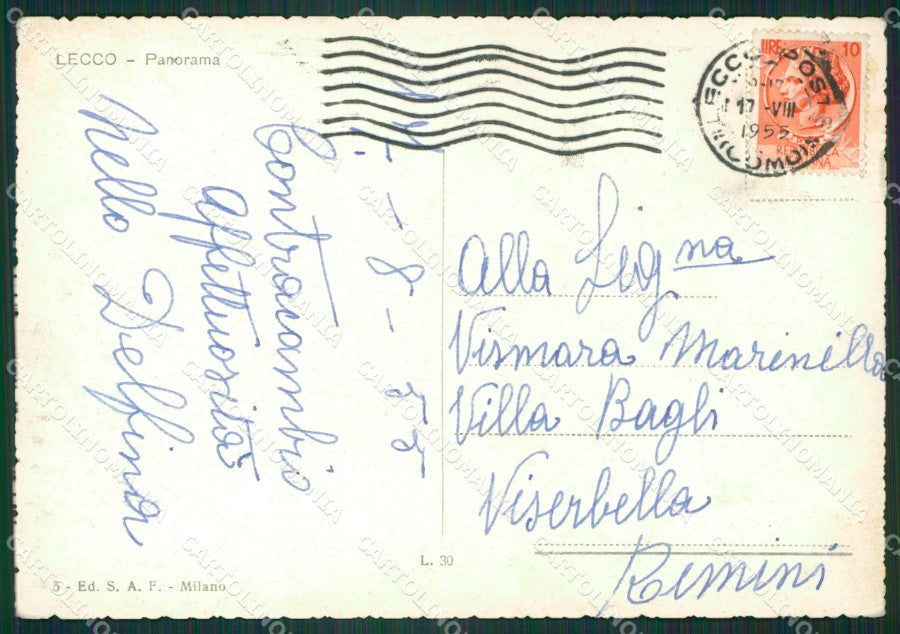 LECCO - Panorama
LIRE 10
LECCO POSTE
17 -VIII
1955
COMO
REP
ANA
17-8-55
Contraccambio
affettuosità
Nello Delfina
Alla Signa
Vismara Marinella
Villa Bagli
Viserbella
Rimini
L. 30
5 - Ed. S. A. F. - Milano
CARTOLINOMANIA